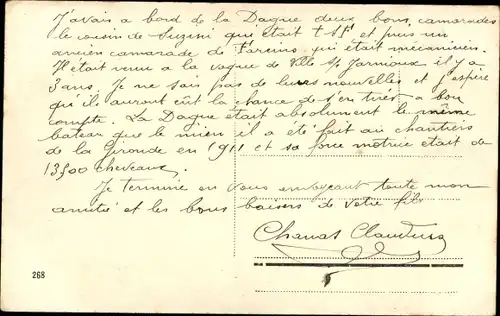 J'avais a bord de la Dague deux bons camarades
le cousin de Suzini qui était t S f et puis un
ancien camarade de qui était mécanicien.
Il était venu a la vogue de Ville s/ Jarnioux il y a
3 ans. Je ne sais pas de leurs nouvelles et j'espère
qu'ils auront eût la chance de s'en tirer a bon
compte. La Dague était absolument le même
bateau que le mien il a été fait au chantiers
de la Gironde en 1911 et sa force motrice était de
13500 chevaux.
Je termine en vous envoyant toute mon
amitié et les bons baisers de votre fils
Chanas Claudius
268